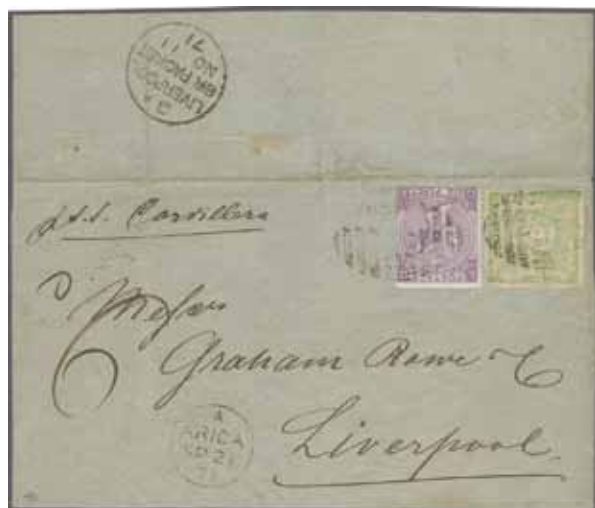 3 A
LIVERPOOL
BR. PACKET
11
71
p.s.s. Cordillera
Messrs
Graham Rowe & C
Liverpool
A
ARICA